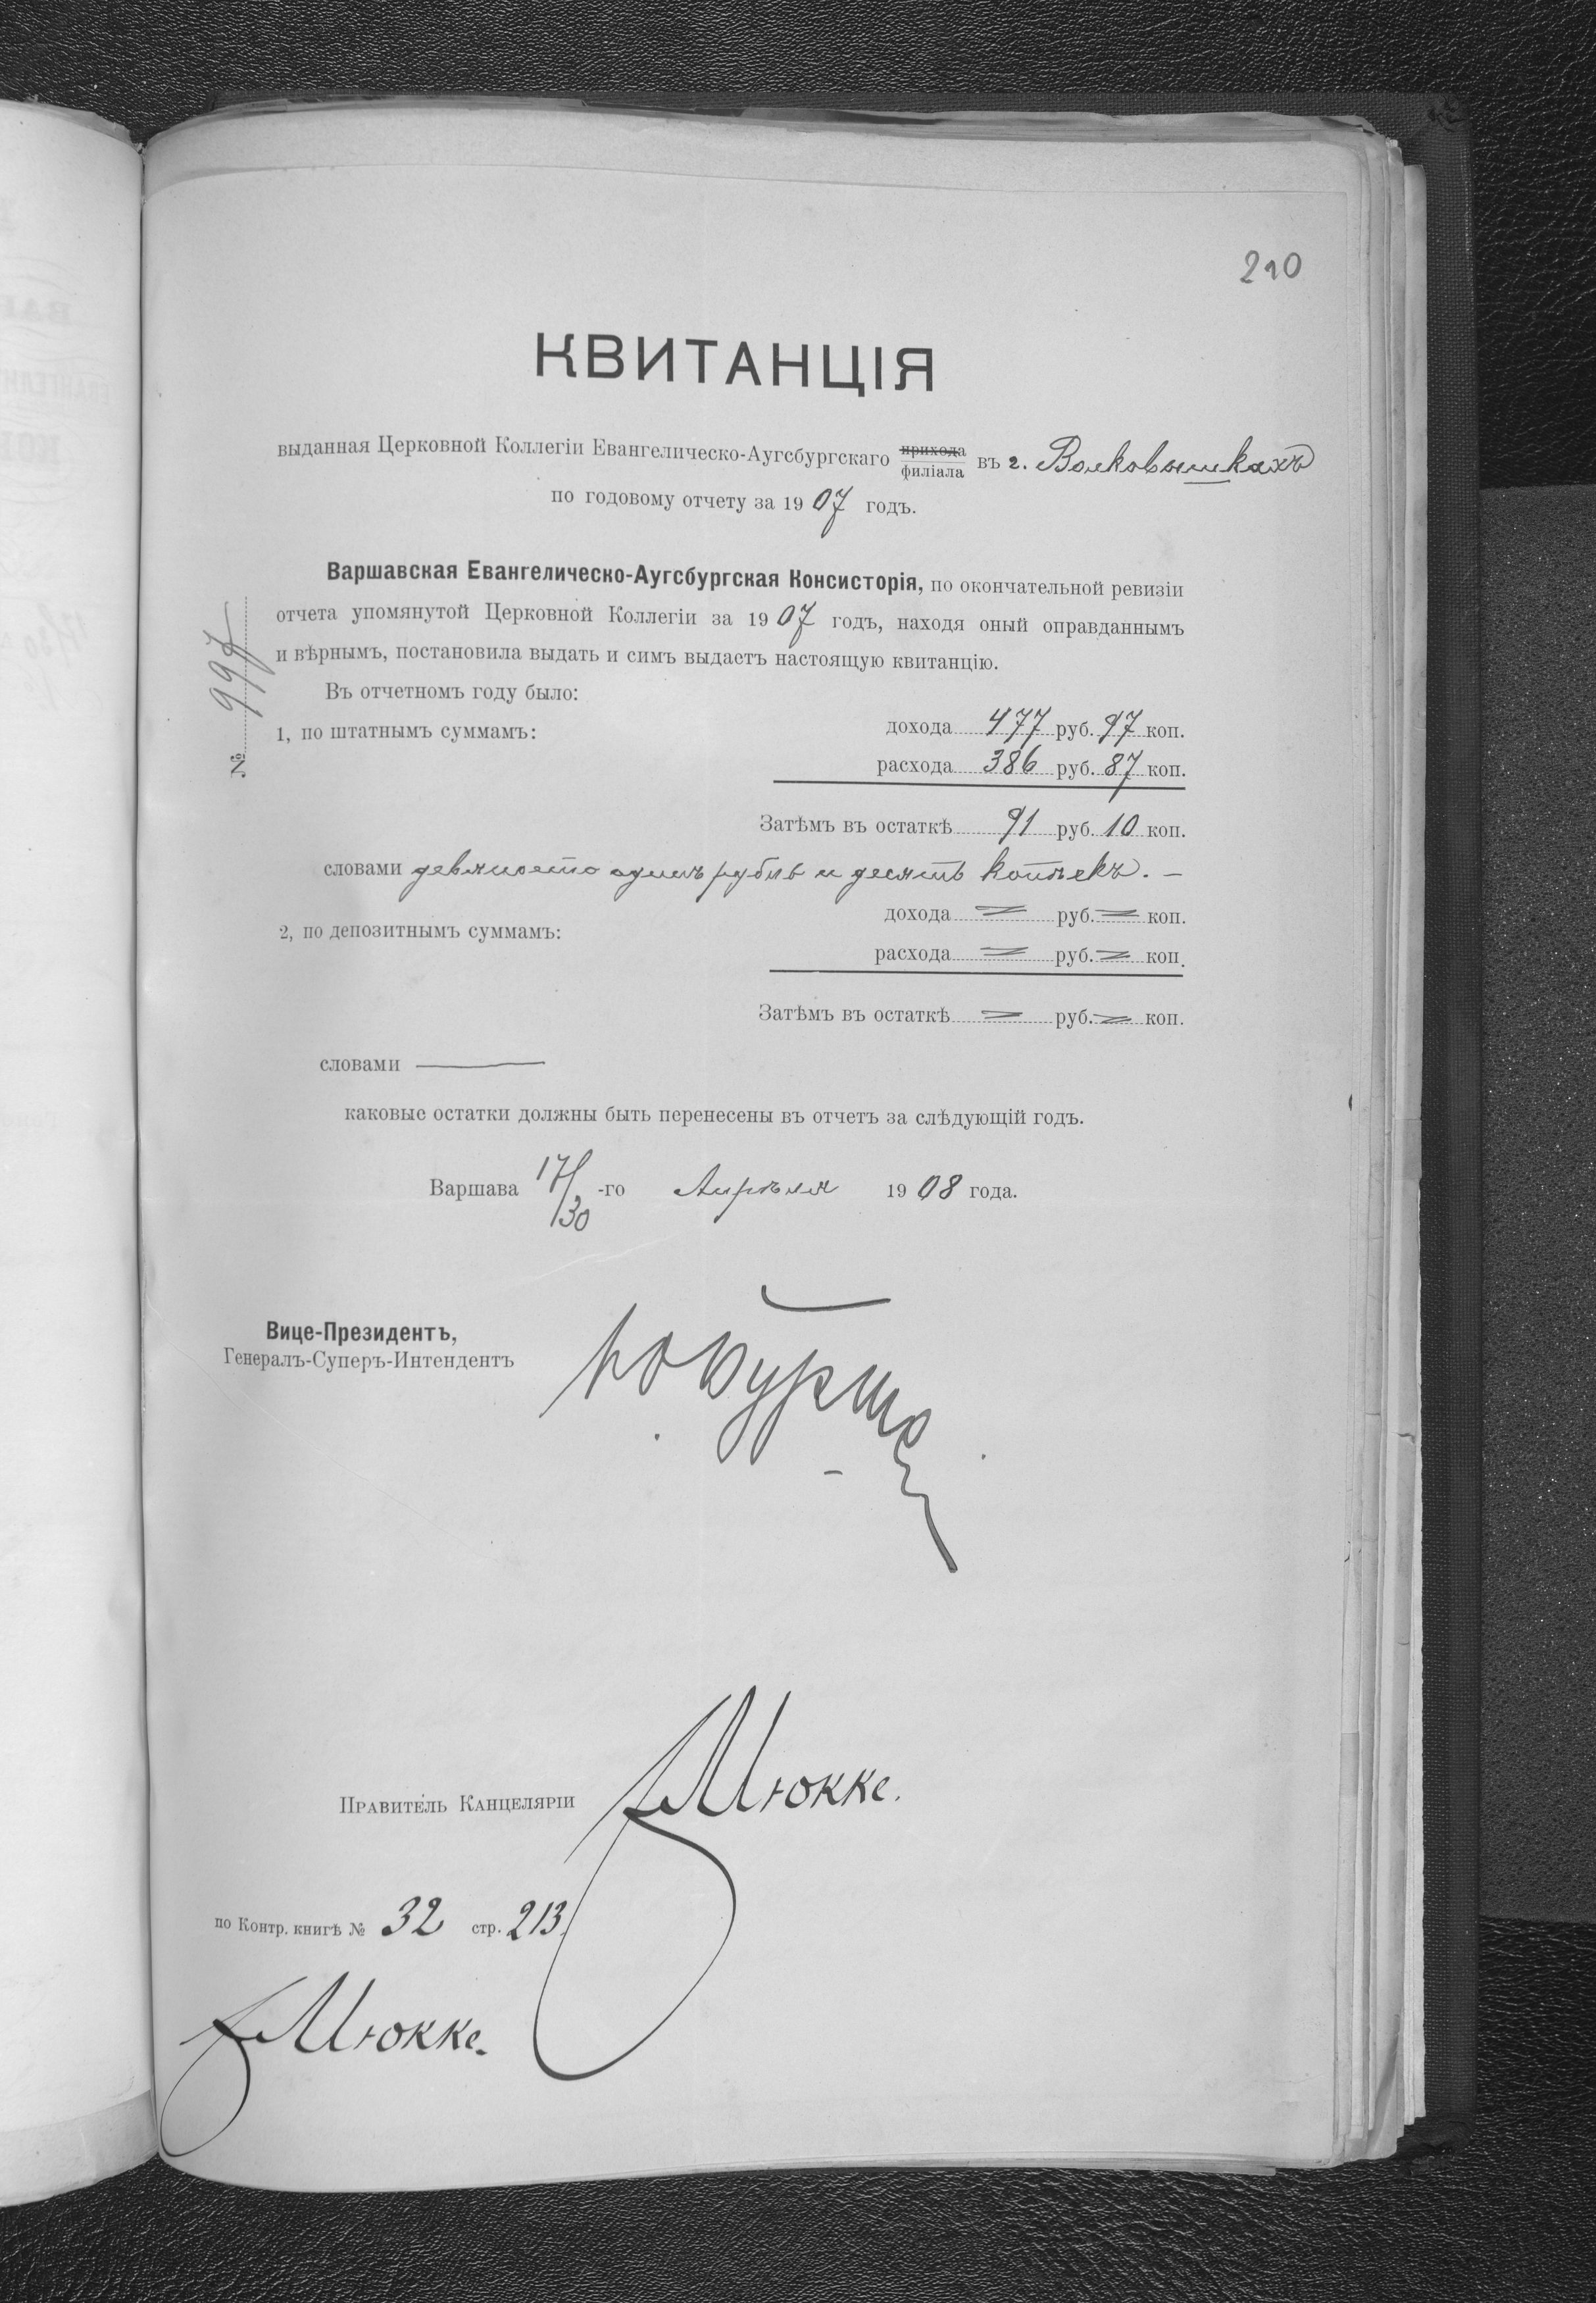 210
КВИТАНЦІЯ
выданная Церковной Коллегіи Евангелическо-Аугсбургскаго прихода филіала въ г. Волковышкахъ
по годовому отчету за 1907 годъ.
Варшавская Евангелическо-Аугсбургская Консисторія, по окончательной ревизіи
отчета упомянутой Церковной Коллегіи за 1907 годъ, находя оный оправданнымъ
и вѣрнымъ, постановила выдать и симъ выдаетъ настоящую квитанцію.
№ 997
Въ отчетномъ году было:
1, по штатнымъ суммамъ: дохода 477 руб. 97 коп.
расхода 386 руб. 87 коп.
Затѣмъ въ остаткѣ 91 руб. 10 коп.
словами девяносто одинъ рубль и десять копѣекъ. —
2, по депозитнымъ суммамъ: дохода = руб. = коп.
расхода = руб. = коп.
Затѣмъ въ остаткѣ = руб. = коп.
словами —
каковые остатки должны быть перенесены въ отчетъ за слѣдующій годъ.
Варшава 17/30 -го Апрѣля 1908 года.
Вице-Президентъ,
Генералъ-Суперъ-Интендентъ
Правитель Канцеляріи Мюкке.
по Контр. книгѣ № 32 стр. 213.
Мюкке.